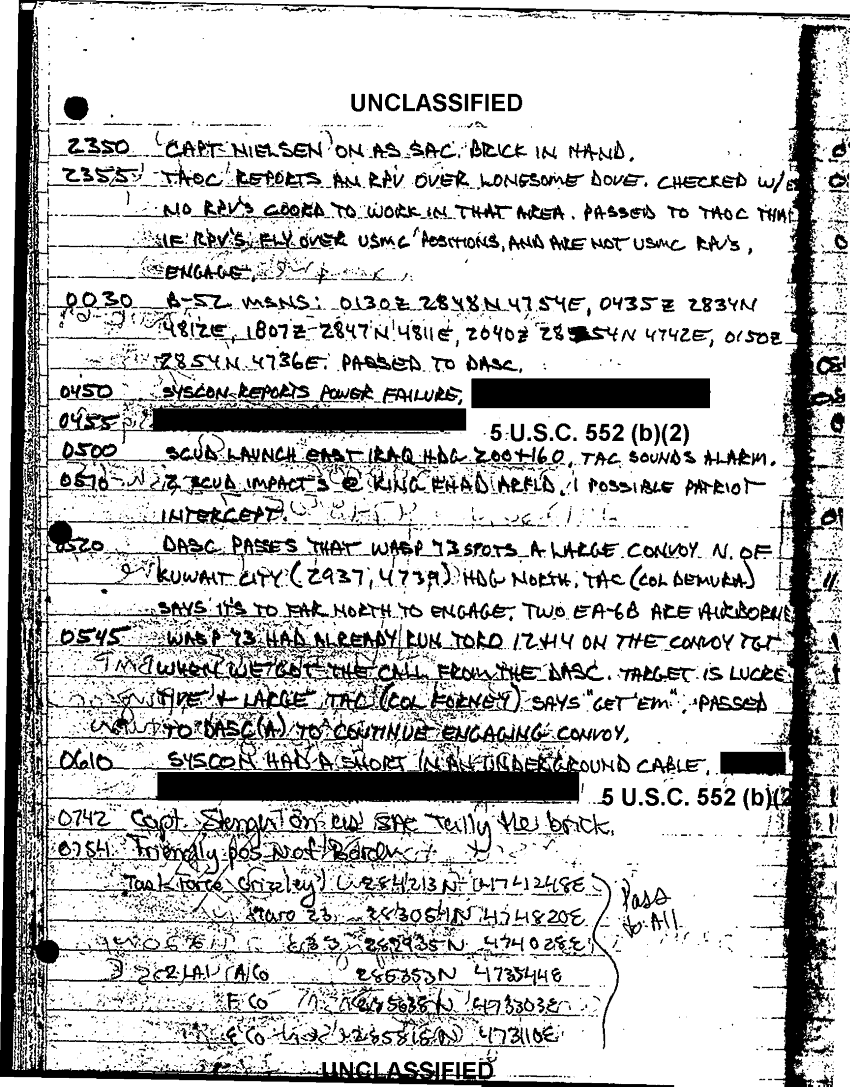 UNCLASSIFIED
2350 CAPT NIELSEN ON AS SAC. BRICK IN HAND.
2355 TAOC REPORTS AN RPV OVER LONESOME DOVE. CHECKED W/
NO RPV'S COORD TO WORK IN THAT AREA. PASSED TO TAOC THAT
IF RPV'S FLY OVER USMC POSITIONS, AND ARE NOT USMC RPV'S,
ENGAGE.
0030 B-52 MSNS: 0130Z 2848N 4754E, 0435Z 2834N
4812E, 1807Z 2847N 4811E, 2040Z 2854N 4742E, 0150Z
2854N 4736E. PASSED TO DASC.
0450 SYSCON REPORTS POWER FAILURE,
0455
5 U.S.C. 552 (b)(2)
0500 SCUD LAUNCH EAST IRAQ HDG 200+160, TAC SOUNDS ALARM.
0510 2 SCUD IMPACTS @ KING FHAD ARFLD, 1 POSSIBLE PATRIOT
INTERCEPT.
0520 DASC PASSES THAT WASP 73 SPOTS A LARGE CONVOY N. OF
KUWAIT CITY (2937, 4739) HDG NORTH, TAC (COL DEMURA)
SAYS IT'S TO FAR NORTH TO ENGAGE. TWO EA-6B ARE AIRBORNE
0545 WASP 73 HAD ALREADY RUN TORO 12+14 ON THE CONVOY TGT
WHEN WE GOT THE CALL FROM THE DASC. TARGET IS LUCRE
TIVE + LARGE TAC (COL FORNEY) SAYS "GET 'EM". PASSED
TO DASC(A) TO CONTINUE ENGAGING CONVOY.
0610 SYSCON HAD A SHORT IN AN UNDERGROUND CABLE.
5 U.S.C. 552 (b)(2
0742 Capt. on as SAC the brick.
0754 Friendly pos
Task Force Grizzley 284213N 4741248E
23 283054N 474820E
33 282935N 474028E
Pass
to All
2 LAI A Co 285353N 473544E
F Co 285638N 473303E
E Co 285818N 473110E
UNCLASSIFIED